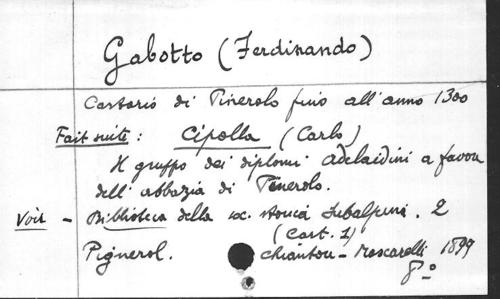 Gabotto (Ferdinando)
Cartario di Pinerolo fino all'anno 1300
Fait suite : Cipolla (Carlo)
Il gruppo dei diplomi adelaidini a favore
dell'abbazia di Pinerolo.
Voir - Biblioteca della soc. storica subalpina. 2
(Cart. 1)
Pignerol. Chiantore-Mascarelli 1899
8°